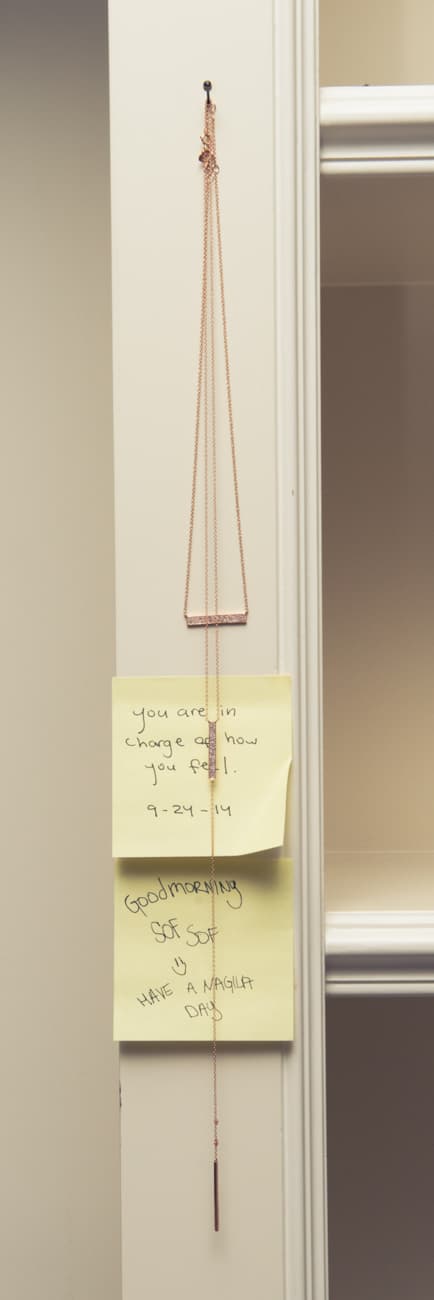 you are in
charge of how
you feel.
9-24-14
Goodmorning
SOF SOF
HAVE A NAGILA
DAY